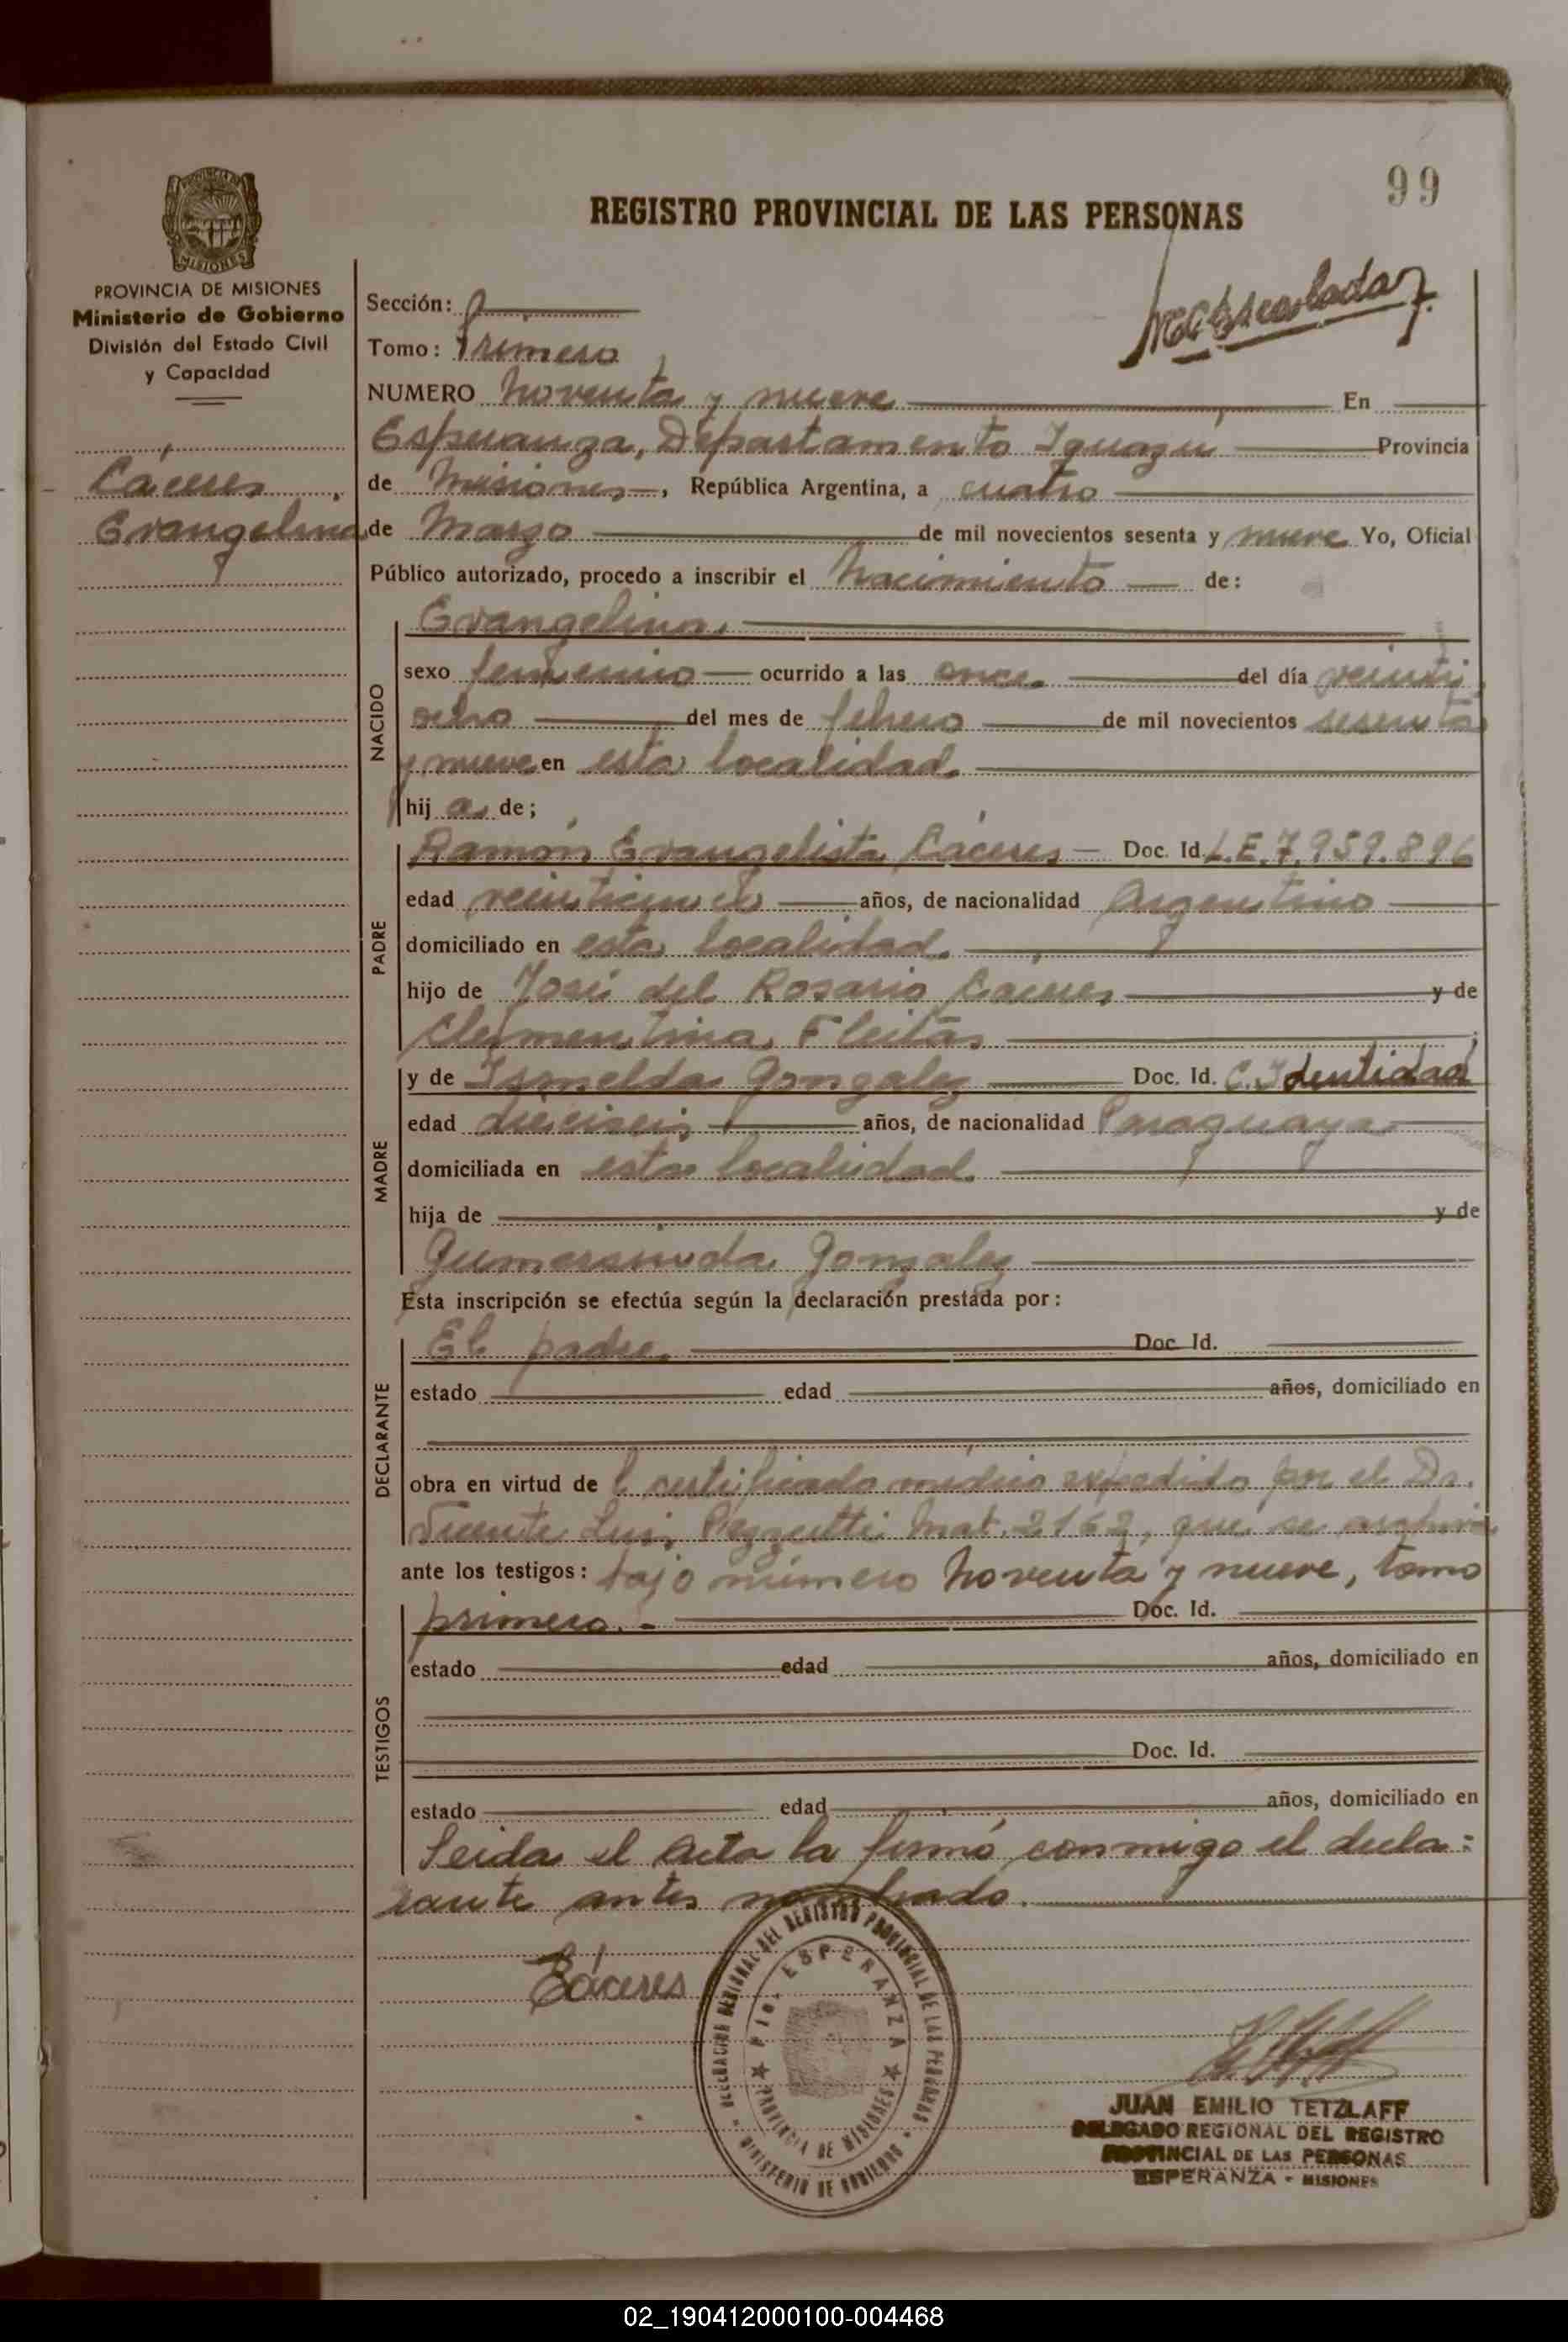 99
REGISTRO PROVINCIAL DE LAS PERSONAS
PROVINCIA DE MISIONES
Ministerio de Gobierno
División del Estado Civil
y Capacidad
Cáceres,
Evangelina
Sección:
Tomo: Primero
NUMERO Noventa y nueve En
Esperanza, Departamento Iguazú Provincia
de Misiones, República Argentina, a cuatro
de Marzo de mil novecientos sesenta y nueve Yo, Oficial
Público autorizado, procedo a inscribir el Nacimiento de:
Evangelina.
NACIDO
sexo femenino ocurrido a las once del día veinti
ocho del mes de febrero de mil novecientos sesenta
y nueve en esta localidad.
hij a de;
PADRE
Ramón Evangelista Cáceres Doc. Id. L.E. 7.959.896
edad veinticinco años, de nacionalidad Argentino
domiciliado en esta localidad.
hijo de José del Rosario Cáceres y de
Clementina Fleitas
MADRE
y de Ismelda Gonzalez Doc. Id. C. Identidad
edad dieciseis años, de nacionalidad Paraguaya
domiciliada en esta localidad.
hija de y de
Gumersinda Gonzalez
Esta inscripción se efectúa según la declaración prestada por:
DECLARANTE
El padre. Doc. Id.
estado edad años, domiciliado en
obra en virtud de l certificado médico expedido por el Dr.
Vicente Luis Mat. 2162, que se archiva
ante los testigos: bajo número Noventa y nueve, tomo
TESTIGOS
primero.- Doc. Id.
estado edad años, domiciliado en
Doc. Id.
estado edad años, domiciliado en
Leida el Acta la firmó conmigo el decla=
rante antes nombrado.
Cáceres
DELEGACION REGIONAL DEL REGISTRO PROVINCIAL DE LAS PERSONAS
ESPERANZA
PROVINCIA DE MISIONES
MINISTERIO DE GOBIERNO
JUAN EMILIO TETZLAFF
DELEGADO REGIONAL DEL REGISTRO
PROVINCIAL DE LAS PERSONAS
ESPERANZA - MISIONES
02_190412000100-004468